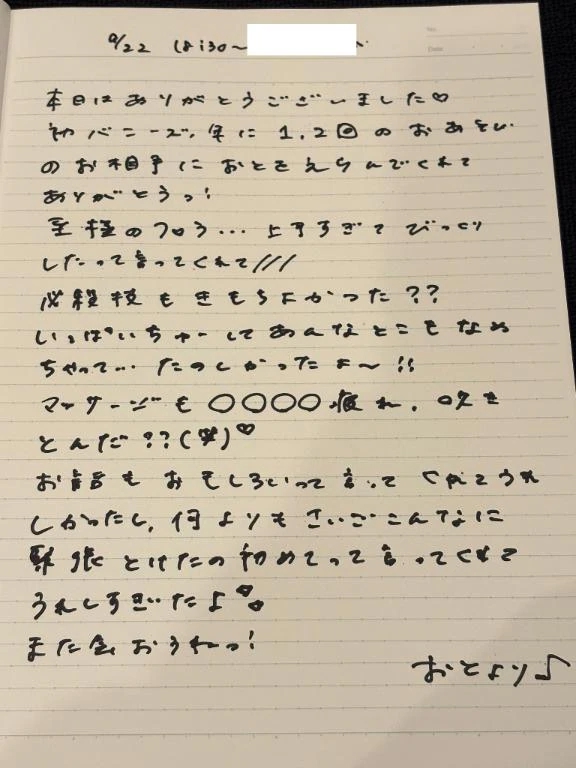 9/22 18:30〜
No.
Date
本日はありがとうございました♡
初バニーズ、年に1,2回のおあそび
のお相手におとをえらんでくれて
ありがとうっ!
王様のフロう…上手すぎてびっくり
したって言ってくれて///
必殺技もきもちよかった??
いっぱいちゅーしてあんなとこもなめ
ちゃって…たのしかったよ〜!!
マッサージも〇〇〇〇疲れ、吹き
とんだ??(笑)♡
お話もおもしろいって言ってくれてうれ
しかったし、何よりもさいごこんなに
緊張とけたの初めてって言ってくれて
うれしすぎたよ♡♡
また会おうねっ!
おとより♪